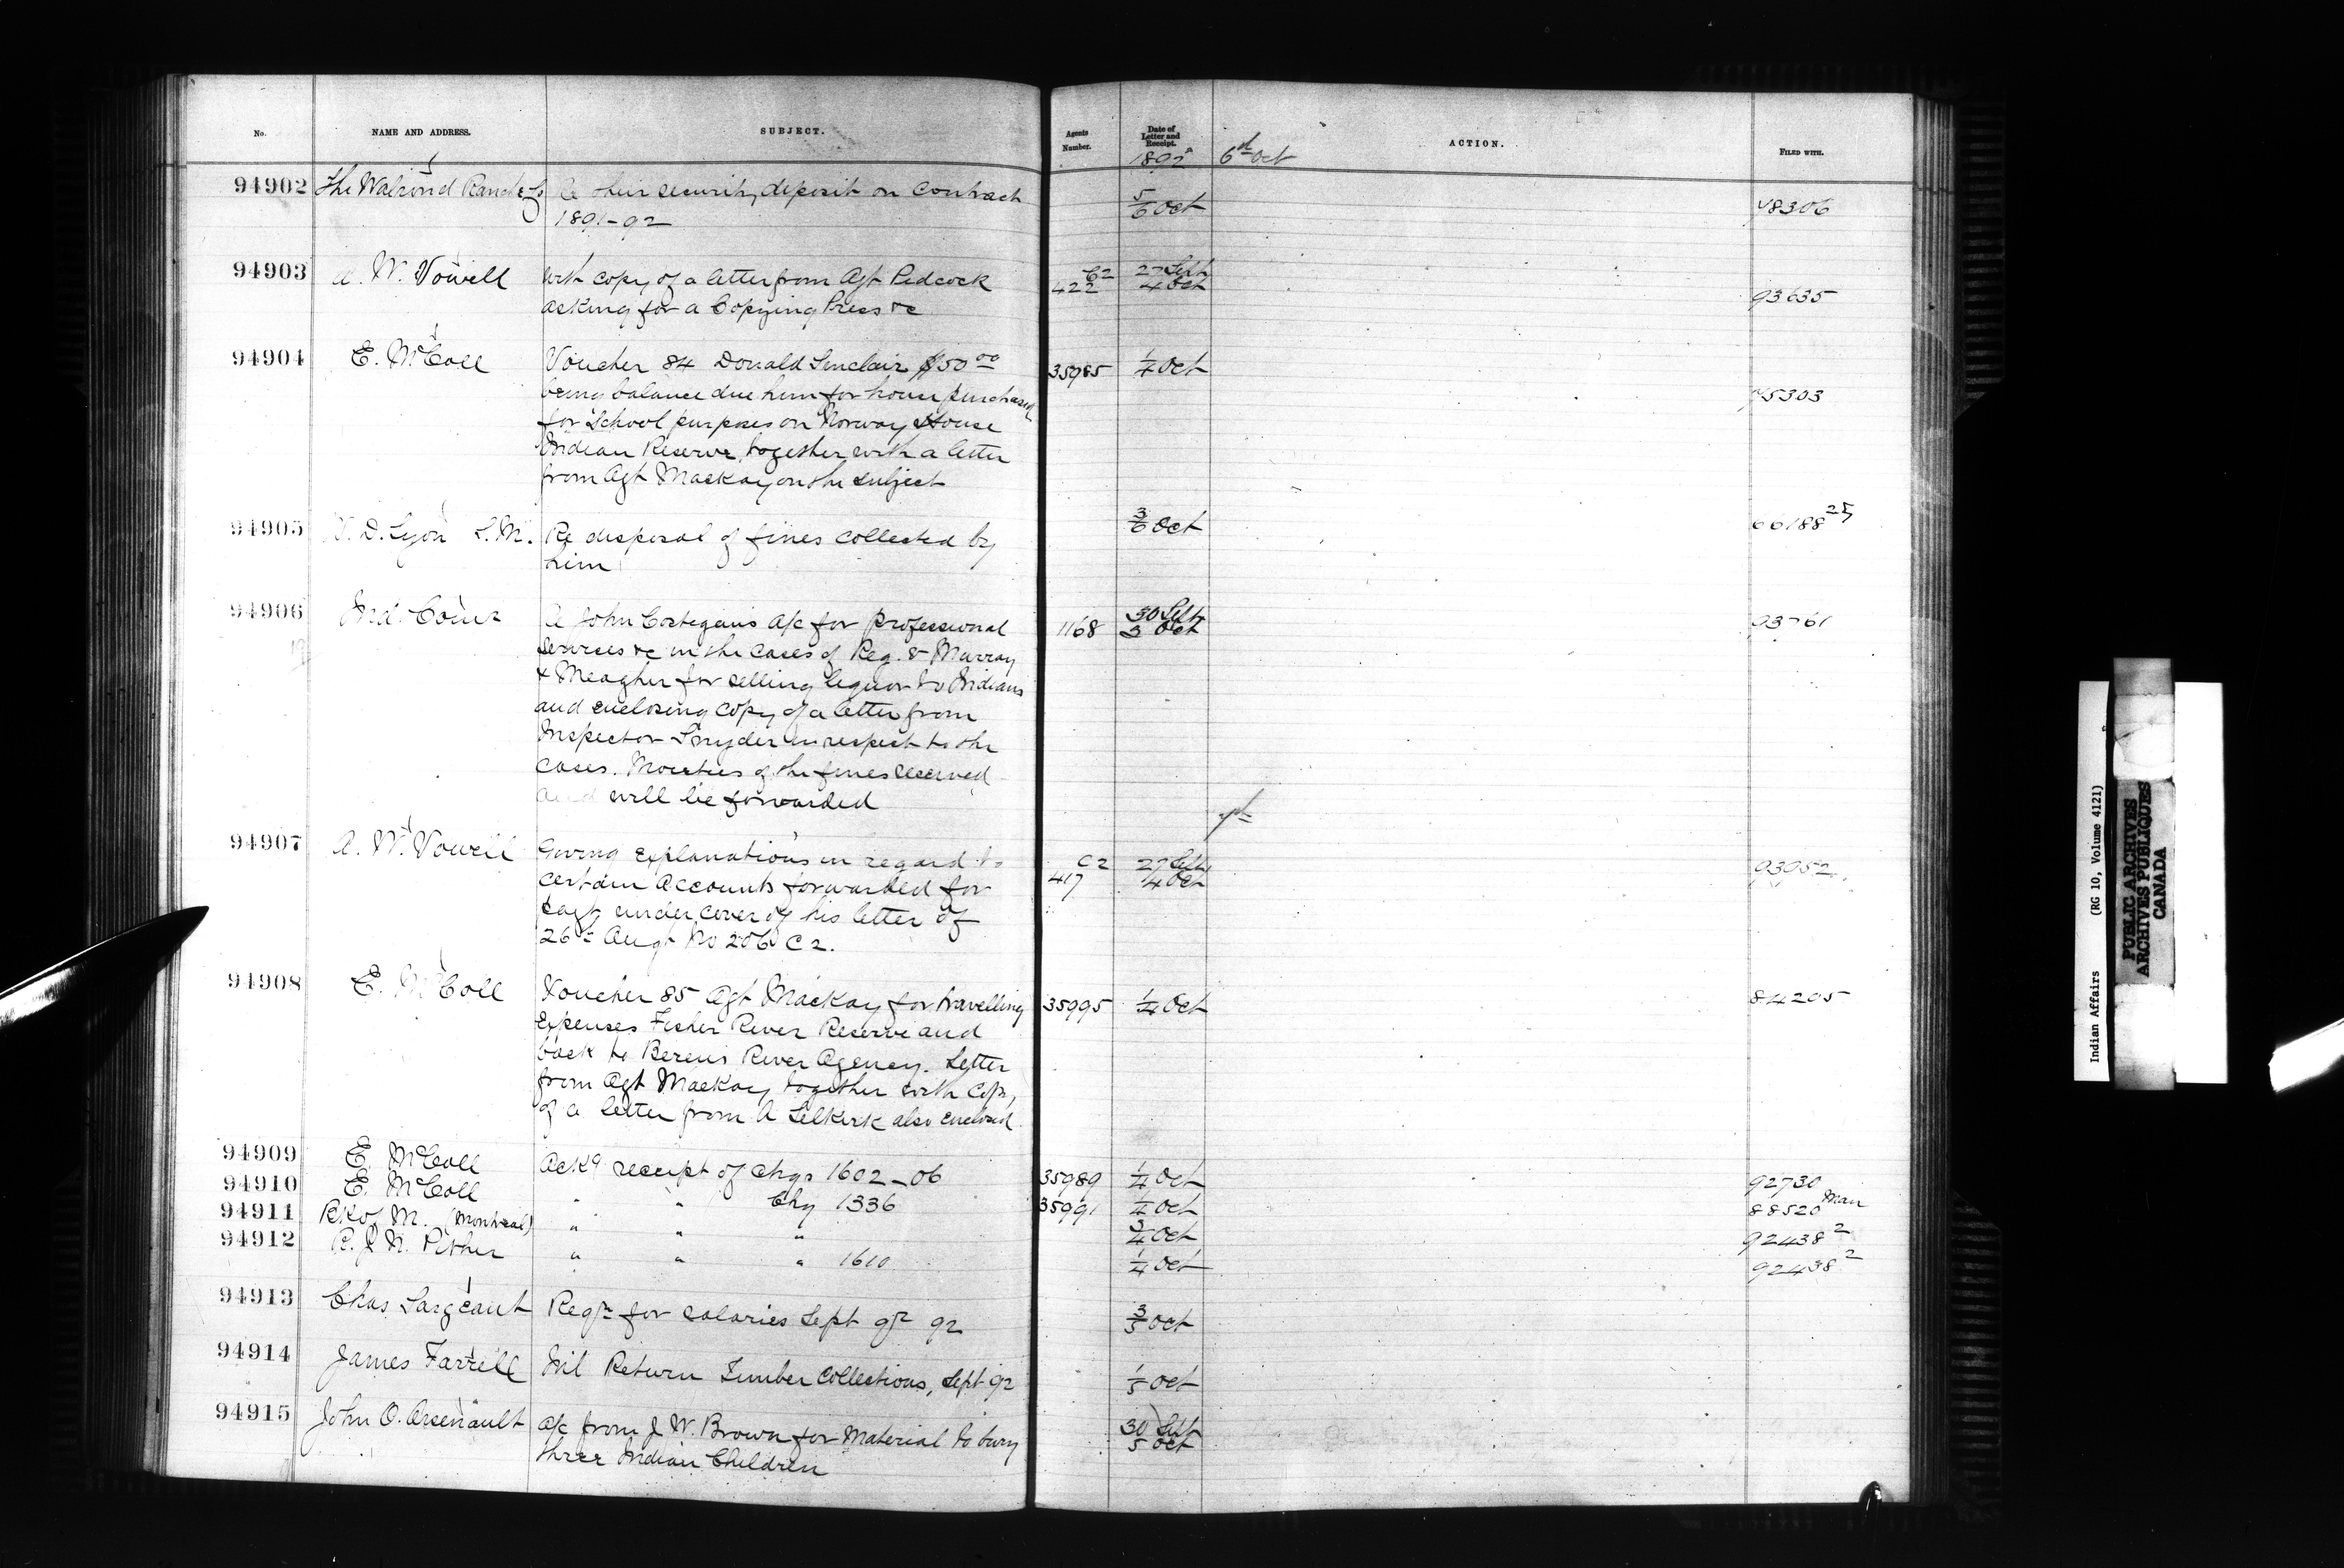 No. NAME AND ADDRESS. SUBJECT. Agents Number. Date of Letter and Receipt. ACTION. FILED WITH.
1892 6th Oct
94902 The Walrond Ranche Co their security deposit on Contract 5/6 Oct 48306
1891-92
94903 A. W. Vowell With copy of a letter from Agt Pidcock 422 C2 27 Sept 4 Oct 93635
asking for a Copying Press &c
94904 E. McColl Voucher 84 Donald Sinclair $50 00 35985 1/4 Oct
being balance due him for house purchased 45303
for School purposes on Norway House
Indian Reserve, together with a letter
from Agt Mackay on the subject
94905 D. Lyon S.M. Re disposal of fines collected by 3/6 Oct 66188 25
him
94906 Ind. Comr John Costegan's a/c for professional 1168 30 Sept 3 Oct 93761
services &c in the cases of Reg. & Murray
& Meagher for selling liquor to Indians
and enclosing copy of a letter from
Inspector Snyder in respect to the
cases. Moieties of the fines received
and will be forwarded
94907 A. W. Vowell Giving explanations in regard to 417 C2 27 Sept 4 Oct 93052
certain accounts forwarded for
under cover of his letter of
26th Augt No 206 C2.
94908 E. McColl Voucher 85 Agt Mackay for travelling 35995 1/4 Oct 84205
expenses Fisher River Reserve and
back to Berens River Agency. Letter
from Agt Mackay together with copy
of a letter from A Selkirk also enclosed
94909 E. McColl Ackg receipt of chqs 1602-06 35989 1/4 Oct 92730
94910 E. McColl " " Chq 1336 35991 1/4 Oct 88520 Man
94911 M. (Montreal) " " " 3/4 Oct 92438 2
94912 R. J. N. Pither " " " 1610 1/4 Oct 92438 2
94913 Chas Sargeant Reqn for salaries Sept qr 92 3/5 Oct
94914 James Farrell Nil Return Timber Collections, Sept 92 1/5 Oct
94915 John O. Arsenault a/c from J. W. Brown for Material to bury 30 Sept 5 Oct
three Indian Children
Indian Affairs (RG 10, Volume 4121)
PUBLIC ARCHIVES
ARCHIVES PUBLIQUES
CANADA